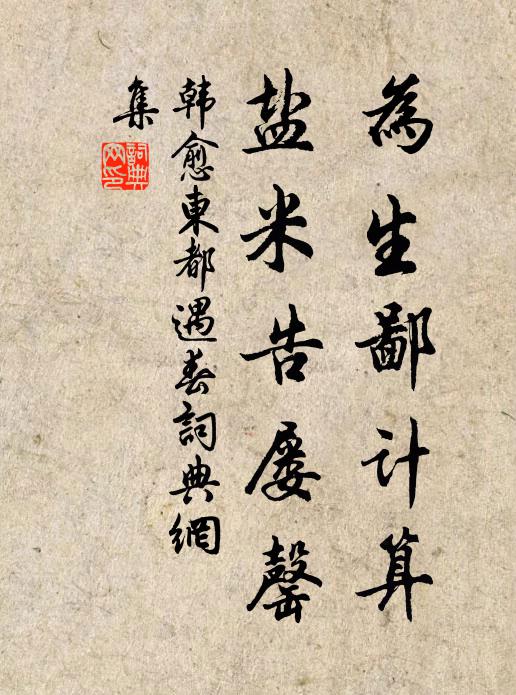 為生鄙计算
盐米告屡罄
韓愈東都遇春詞典網
集
詞典
网印